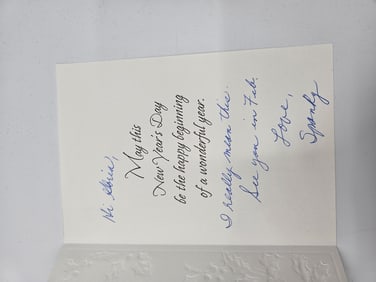 Hi
May this
New Year's Day
be the happy beginning
of a wonderful year.
I really mean this.
See you in Feb.
Love,